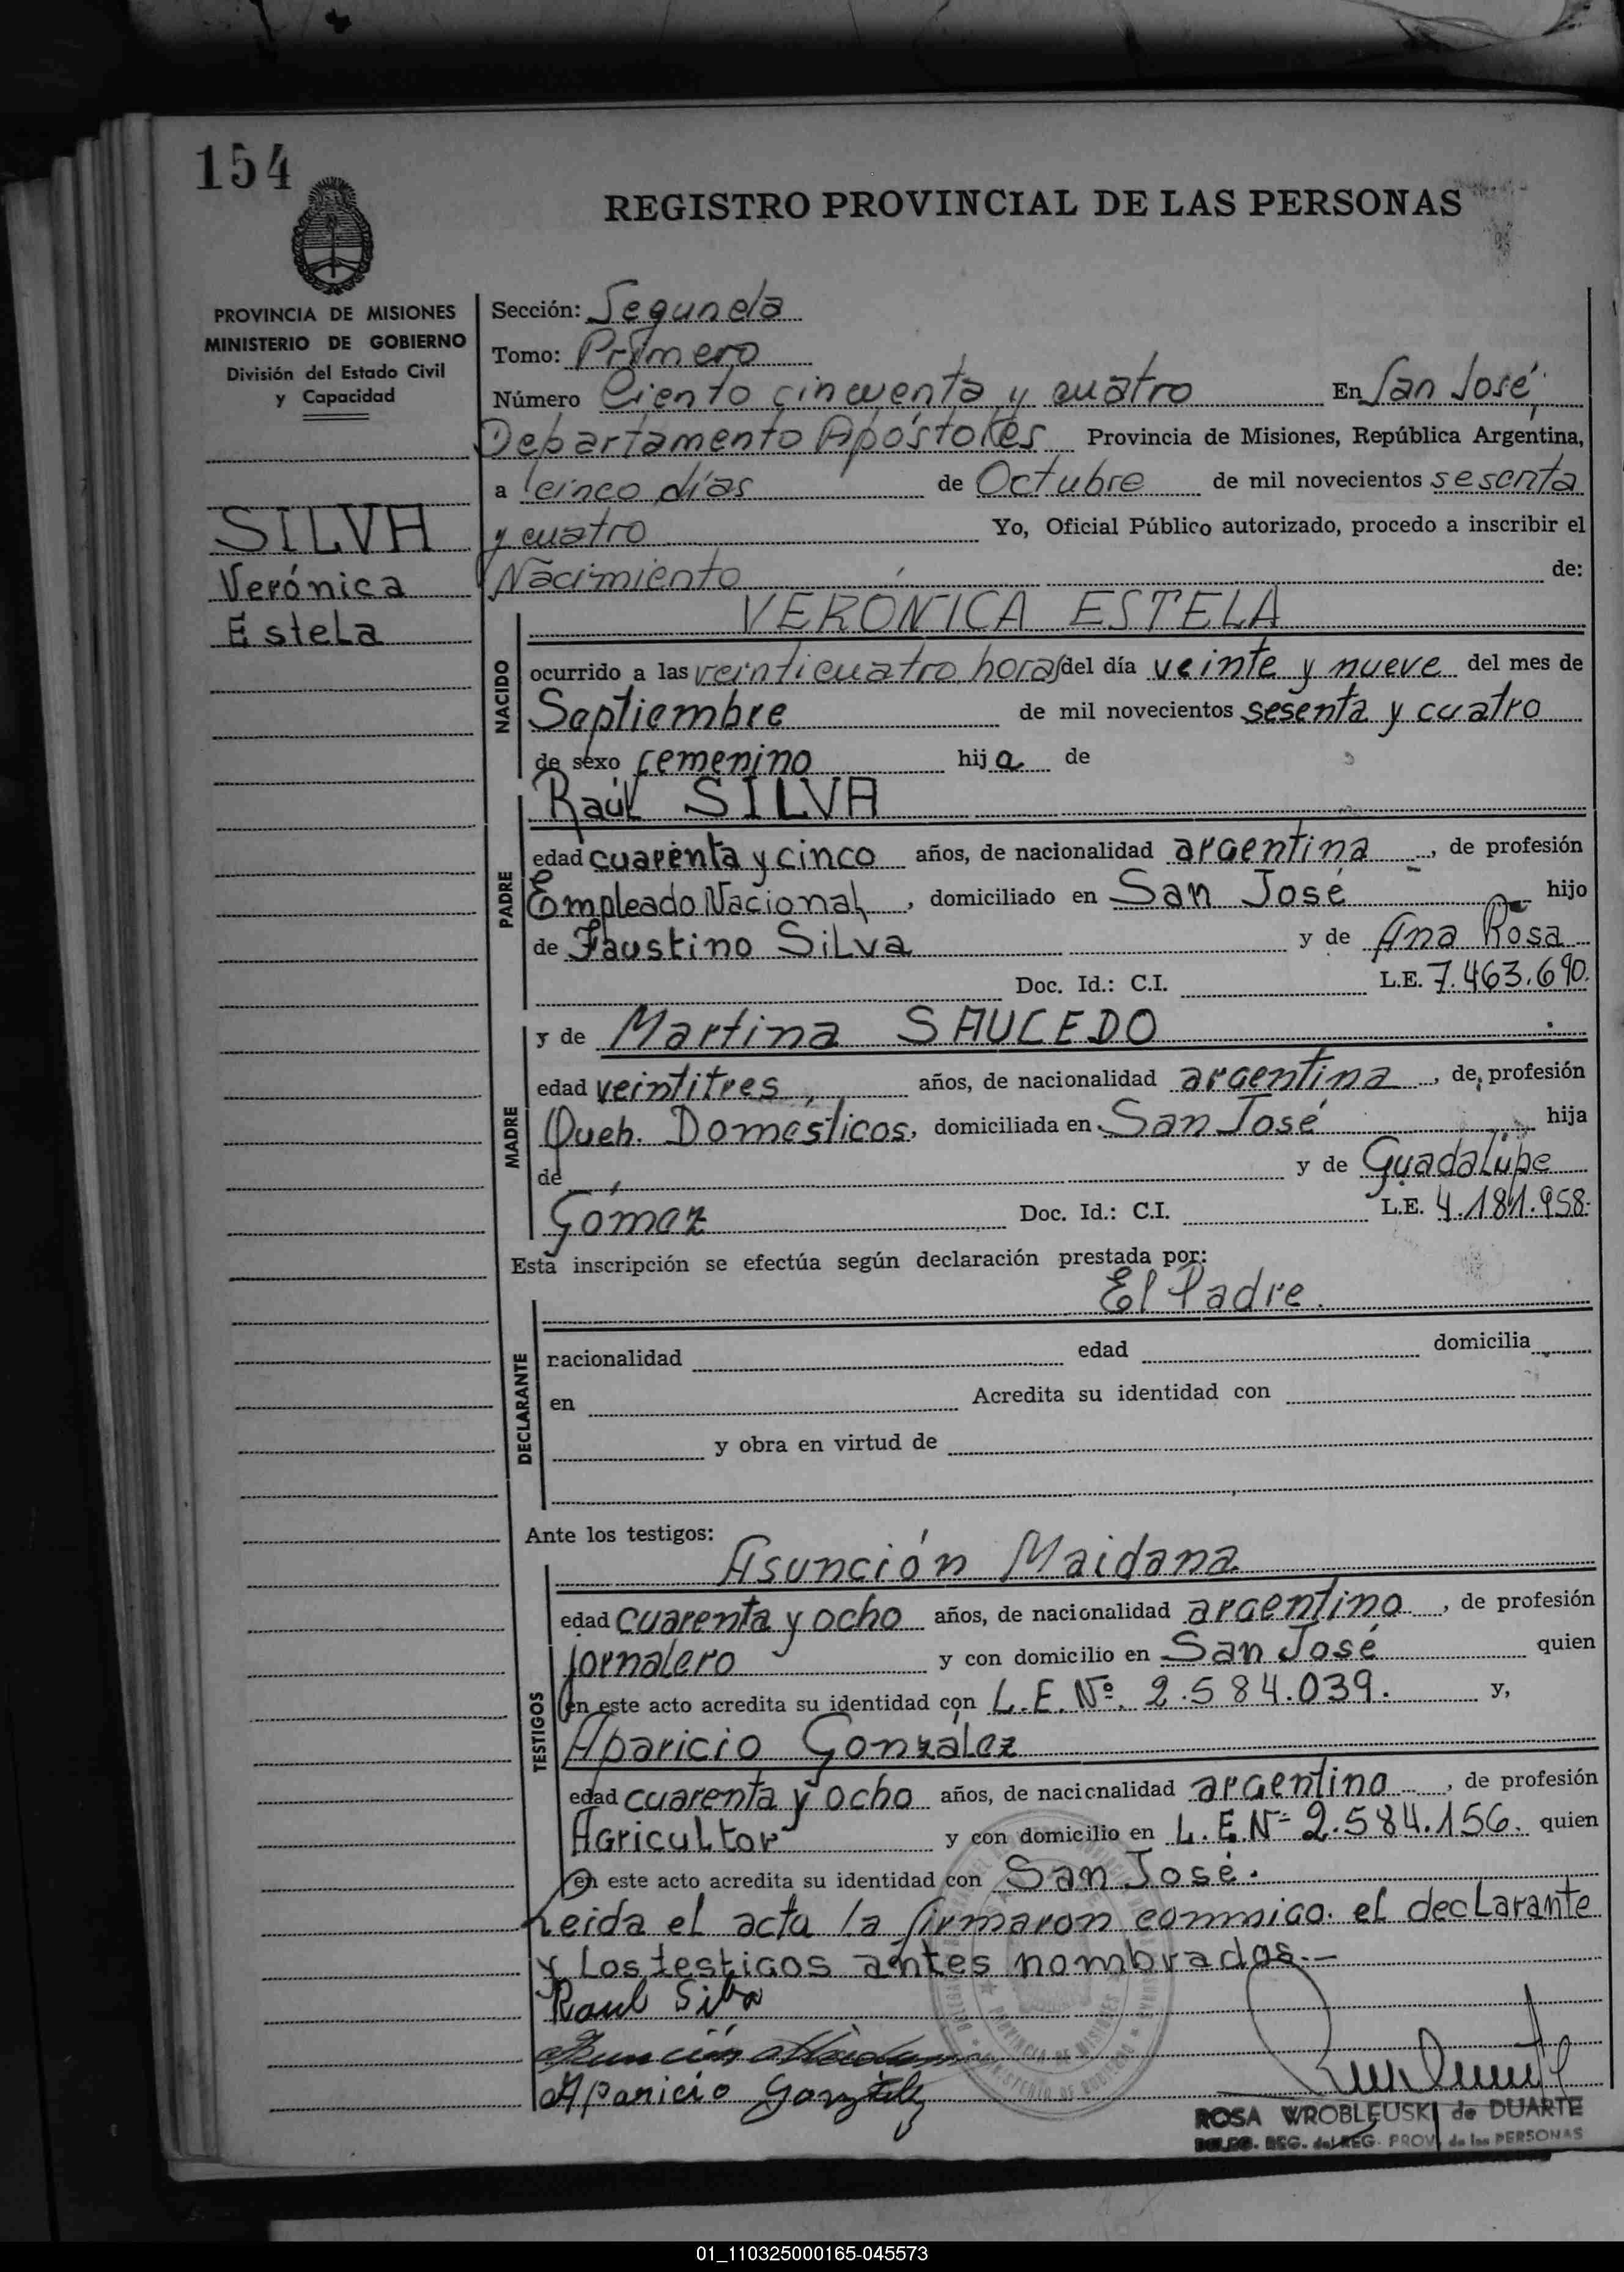 154
REGISTRO PROVINCIAL DE LAS PERSONAS
PROVINCIA DE MISIONES
MINISTERIO DE GOBIERNO
División del Estado Civil
y Capacidad
SILVA
Verónica
Estela
Sección: Segunda
Tomo: Primero
Número Ciento cincuenta y cuatro En San José,
Departamento Apóstoles Provincia de Misiones, República Argentina,
a cinco días de Octubre de mil novecientos sesenta
y cuatro Yo, Oficial Público autorizado, procedo a inscribir el
Nacimiento de:
NACIDO
VERÓNICA ESTELA
ocurrido a las veinticuatro horas del día veinte y nueve del mes de
Septiembre de mil novecientos sesenta y cuatro
de sexo femenino hija de
PADRE
Raúl SILVA
edad cuarenta y cinco años, de nacionalidad argentina, de profesión
Empleado Nacional, domiciliado en San José hijo
de Faustino Silva y de Ana Rosa
Doc. Id.: C.I. L.E. 7.463.690.
MADRE
y de Martina SAUCEDO
edad veintitres, años, de nacionalidad argentina, de profesión
Queh. Domésticos, domiciliada en San José hija
de y de Guadalupe
Gómez Doc. Id.: C.I. L.E. 4.181.958.
Esta inscripción se efectúa según declaración prestada por:
El Padre.
DECLARANTE
nacionalidad edad domicilia
en Acredita su identidad con
y obra en virtud de
Ante los testigos:
TESTIGOS
Asunción Maidana
edad cuarenta y ocho años, de nacionalidad argentino, de profesión
jornalero y con domicilio en San José quien
en este acto acredita su identidad con L.E. Nº. 2.584.039. y,
Aparicio González
edad cuarenta y ocho años, de nacicnalidad argentino, de profesión
Agricultor y con domicilio en L.E.Nº 2.584.156. quien
en este acto acredita su identidad con San José.
Leida el acta la firmaron conmigo. el declarante
y los testigos antes nombrados.-
Raul Silva
Asunción Maidana
Aparicio González
PROVINCIA DE MISIONES
MINISTERIO DE GOBIERNO
ROSA WROBLEUSKI de DUARTE
REG. del REG. PROV. de las PERSONAS
01_110325000165-045573